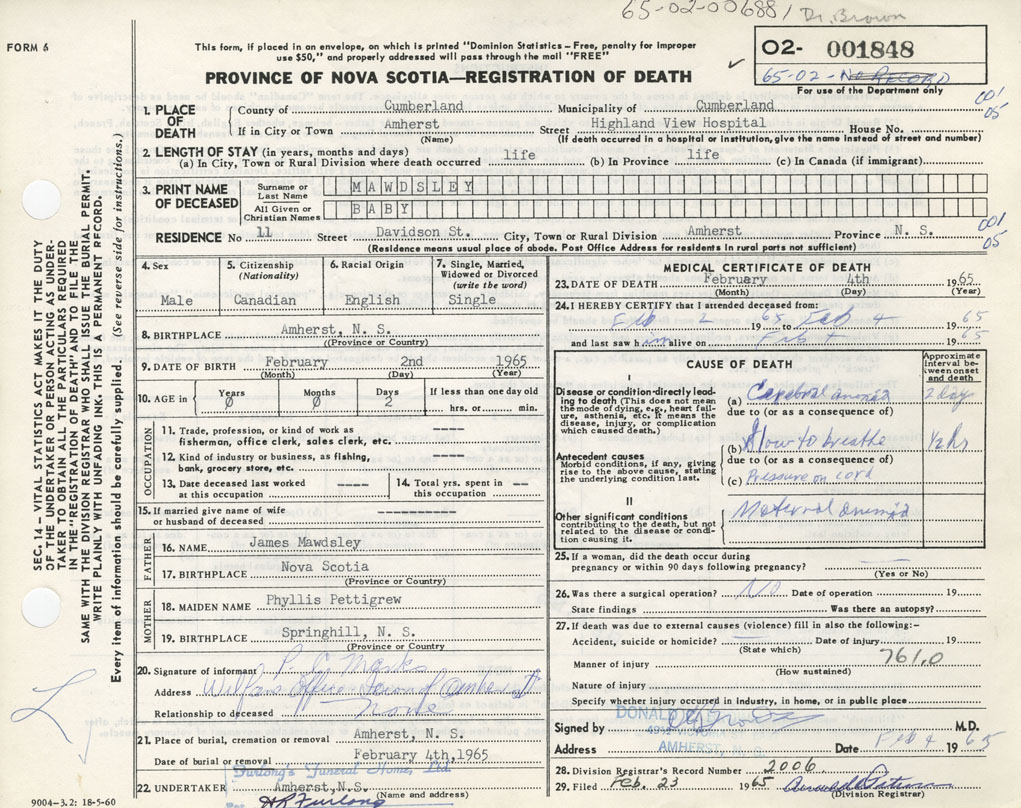 65-02-00688 / Dr. Brown
FORM 6
This form, if placed in an envelope, on which is printed "Dominion Statistics – Free, penalty for improper
use $50," and properly addressed will pass through the mail "FREE"
PROVINCE OF NOVA SCOTIA—REGISTRATION OF DEATH
O2- 001848
65-02- No RECORD
For use of the Department only
001
05
1. PLACE OF DEATH
County of Cumberland Municipality of Cumberland
If in City or Town Amherst Street Highland View Hospital House No.
(Name) (If death occurred in a hospital or institution, give the name instead of street and number)
2. LENGTH OF STAY (in years, months and days)
(a) In City, Town or Rural Division where death occurred life (b) In Province life (c) In Canada (if immigrant)
3. PRINT NAME OF DECEASED
Surname or Last Name MAWDSLEY
All Given or Christian Names BABY
001
05
RESIDENCE No 11 Street Davidson St. City, Town or Rural Division Amherst Province N. S.
(Residence means usual place of abode. Post Office Address for residents in rural parts not sufficient)
4. Sex
Male
5. Citizenship (Nationality)
Canadian
6. Racial Origin
English
7. Single, Married, Widowed or Divorced (write the word)
Single
8. BIRTHPLACE Amherst, N. S.
(Province or Country)
9. DATE OF BIRTH February 2nd 1965
(Month) (Day) (Year)
10. AGE in Years 0 Months 0 Days 2 If less than one day old
hrs. or min.
OCCUPATION
11. Trade, profession, or kind of work as
fisherman, office clerk, sales clerk, etc. -----
12. Kind of industry or business, as fishing,
bank, grocery store, etc. -----
13. Date deceased last worked
at this occupation ----
14. Total yrs. spent in
this occupation ---
15. If married give name of wife
or husband of deceased -----------
FATHER
16. NAME James Mawdsley
17. BIRTHPLACE Nova Scotia
(Province or Country)
MOTHER
18. MAIDEN NAME Phyllis Pettigrew
19. BIRTHPLACE Springhill, N. S.
(Province or Country
20. Signature of informant
Address Welfare Office Town of Amherst
Relationship to deceased None
21. Place of burial, cremation or removal Amherst, N. S.
Date of burial or removal February 4th,1965
Furlong's Funeral Home, Ltd.
22. UNDERTAKER Amherst,N.S.
(Name and address)
Per H R Furlong
9004-3.2: 18-5-60
MEDICAL CERTIFICATE OF DEATH
23. DATE OF DEATH February 4th 1965
(Month) (Day) (Year)
24. I HEREBY CERTIFY that I attended deceased from:
Feb 2 1965 to Feb 4 1965
and last saw him alive on Feb 4 1965
CAUSE OF DEATH
Approximate interval between onset and death
I
Disease or condition directly leading to death (This does not mean the mode of dying, e.g., heart failure, asthenia, etc. It means the disease, injury, or complication which caused death.)
(a) Cerebral 2 day
due to (or as a consequence of)
Antecedent causes
Morbid conditions, if any, giving rise to the above cause, stating the underlying condition last.
(b) Slow to breathe ½ hr
due to (or as a consequence of)
(c) Pressure on cord
II
Other significant conditions
contributing to the death, but not related to the disease or condition causing it.
Maternal
25. If a woman, did the death occur during
pregnancy or within 90 days following pregnancy?
(Yes or No)
26. Was there a surgical operation? NO Date of operation 19
State findings Was there an autopsy?
27. If death was due to external causes (violence) fill in also the following:-
Accident, suicide or homicide? Date of injury 19
(State which)
Manner of injury 761.0
(How sustained)
Nature of injury
Specify whether injury occurred in industry, in home, or in public place
Signed by M.D.
Address AMHERST, N. S. Date Feb 4 1965
28. Division Registrar's Record Number 2006
29. Filed Feb. 23 1965
(Division Registrar)
SEC. 14 – VITAL STATISTICS ACT MAKES IT THE DUTY
OF THE UNDERTAKER OR PERSON ACTING AS UNDER-
TAKER TO OBTAIN ALL THE PARTICULARS REQUIRED
IN THE "REGISTRATION OF DEATH" AND TO FILE THE
SAME WITH THE DIVISION REGISTRAR WHO SHALL ISSUE THE BURIAL PERMIT.
WRITE PLAINLY WITH UNFADING INK. THIS IS A PERMANENT RECORD.
Every item of information should be carefully supplied. (See reverse side for instructions.)